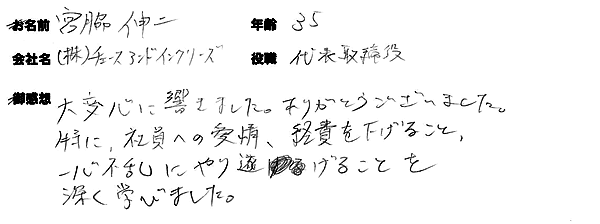 お名前 宮脇 伸二 年齢 35
会社名 (株)チェースアンドインクリーズ 役職 代表取締役
御感想 大変心に響きました。ありがとうございました。
特に、社員への愛情、経費を下げること、
一心不乱にやり遂げることを
深く学びました。